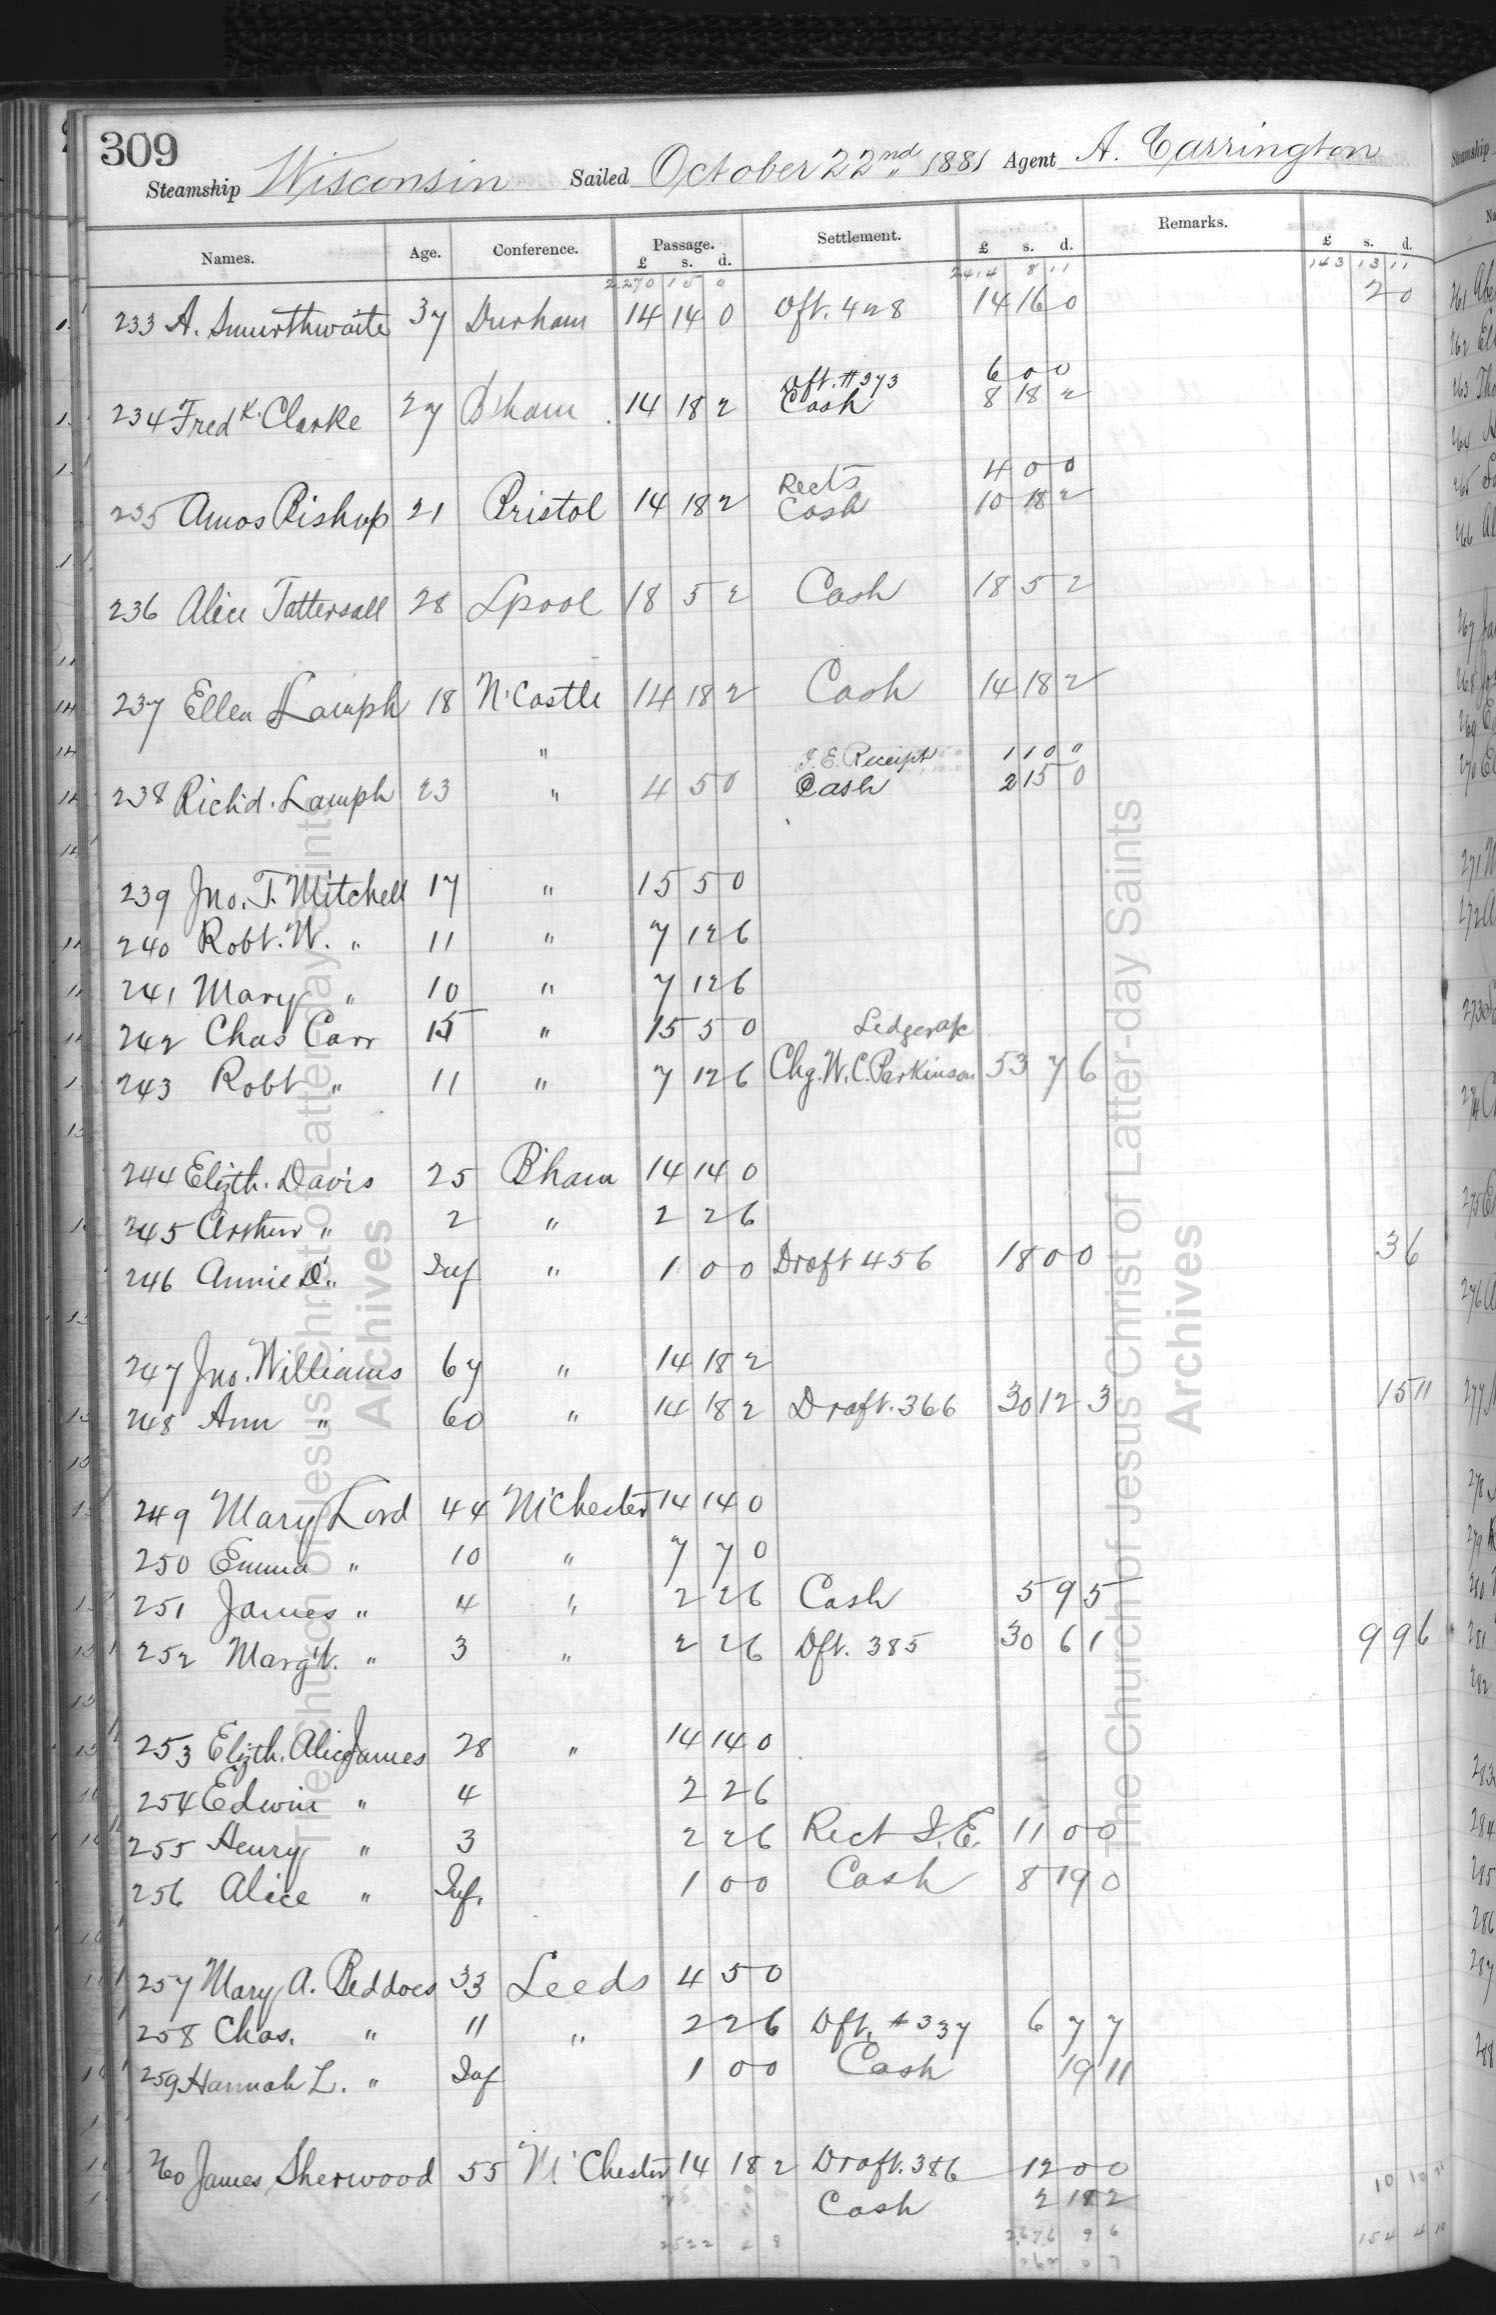 309
Steamship Wisconsin Sailed October 22nd 1881 Agent A. Carrington
Names. Age. Conference. Passage. Settlement. £ s. d. Remarks. £ s. d.
£ s. d.
2,270 15 0 2414 8 11 143 13 11
233 A. Smurthwaite 37 Durham 14 14 0 Dft. 428 14 16 0 2 0
Dft. #373 6 0 0
234 Fredk. Clarke 27 B'ham 14 18 2 Cash 8 18 2
Rects 4 0 0
235 Amos Bishop 21 Bristol 14 18 2 Cash 10 18 2
236 Alice Tattersall 28 Lpool 18 5 2 Cash 18 5 2
237 Ellen Lamph 18 N'Castle 14 18 2 Cash 14 18 2
" I.E. Receipt 1 10 "
238 Richd. Lamph 23 " 4 5 0 Cash 2 15 0
239 Jno. T. Mitchell 17 " 15 5 0
240 Robt. W. " 11 " 7 12 6
241 Mary " 10 " 7 12 6
242 Chas Carr 15 " 15 5 0 Ledger a/c
243 Robt " 11 " 7 12 6 Chg. W. C. Parkinson 53 7 6
244 Elizth. Davis 25 B'ham 14 14 0
245 Arthur " 2 " 2 2 6
246 Annie D. " Inf " 1 0 0 Draft 456 18 0 0 3 6
247 Jno. Williams 67 " 14 18 2
248 Ann " 60 " 14 18 2 Draft. 366 30 12 3 15 11
249 Mary Lord 44 M'Chester 14 14 0
250 Emma " 10 " 7 7 0
251 James " 4 " 2 2 6 Cash 5 9 5
252 Marg't. " 3 " 2 2 6 Dft. 385 30 6 1 9 9 6
253 Elizth. Alice James 28 " 14 14 0
254 Edwin " 4 2 2 6
255 Henry " 3 2 2 6 Rect I.E. 11 0 0
256 Alice " Inf. 1 0 0 Cash 8 19 0
257 Mary A. Beddoes 33 Leeds 4 5 0
258 Chas. " 11 " 2 2 6 Dft. #337 6 7 7
259 Hannah L. " Inf 1 0 0 Cash 19 11
260 James Sherwood 55 M'Chester 14 18 2 Draft. 386 12 0 0 10 10 11
Cash 2 18 2
2522 4 8 2676 9 6 154 4 10
The Church of Jesus Christ of Latter-day Saints
Archives
The Church of Jesus Christ of Latter-day Saints
Archives